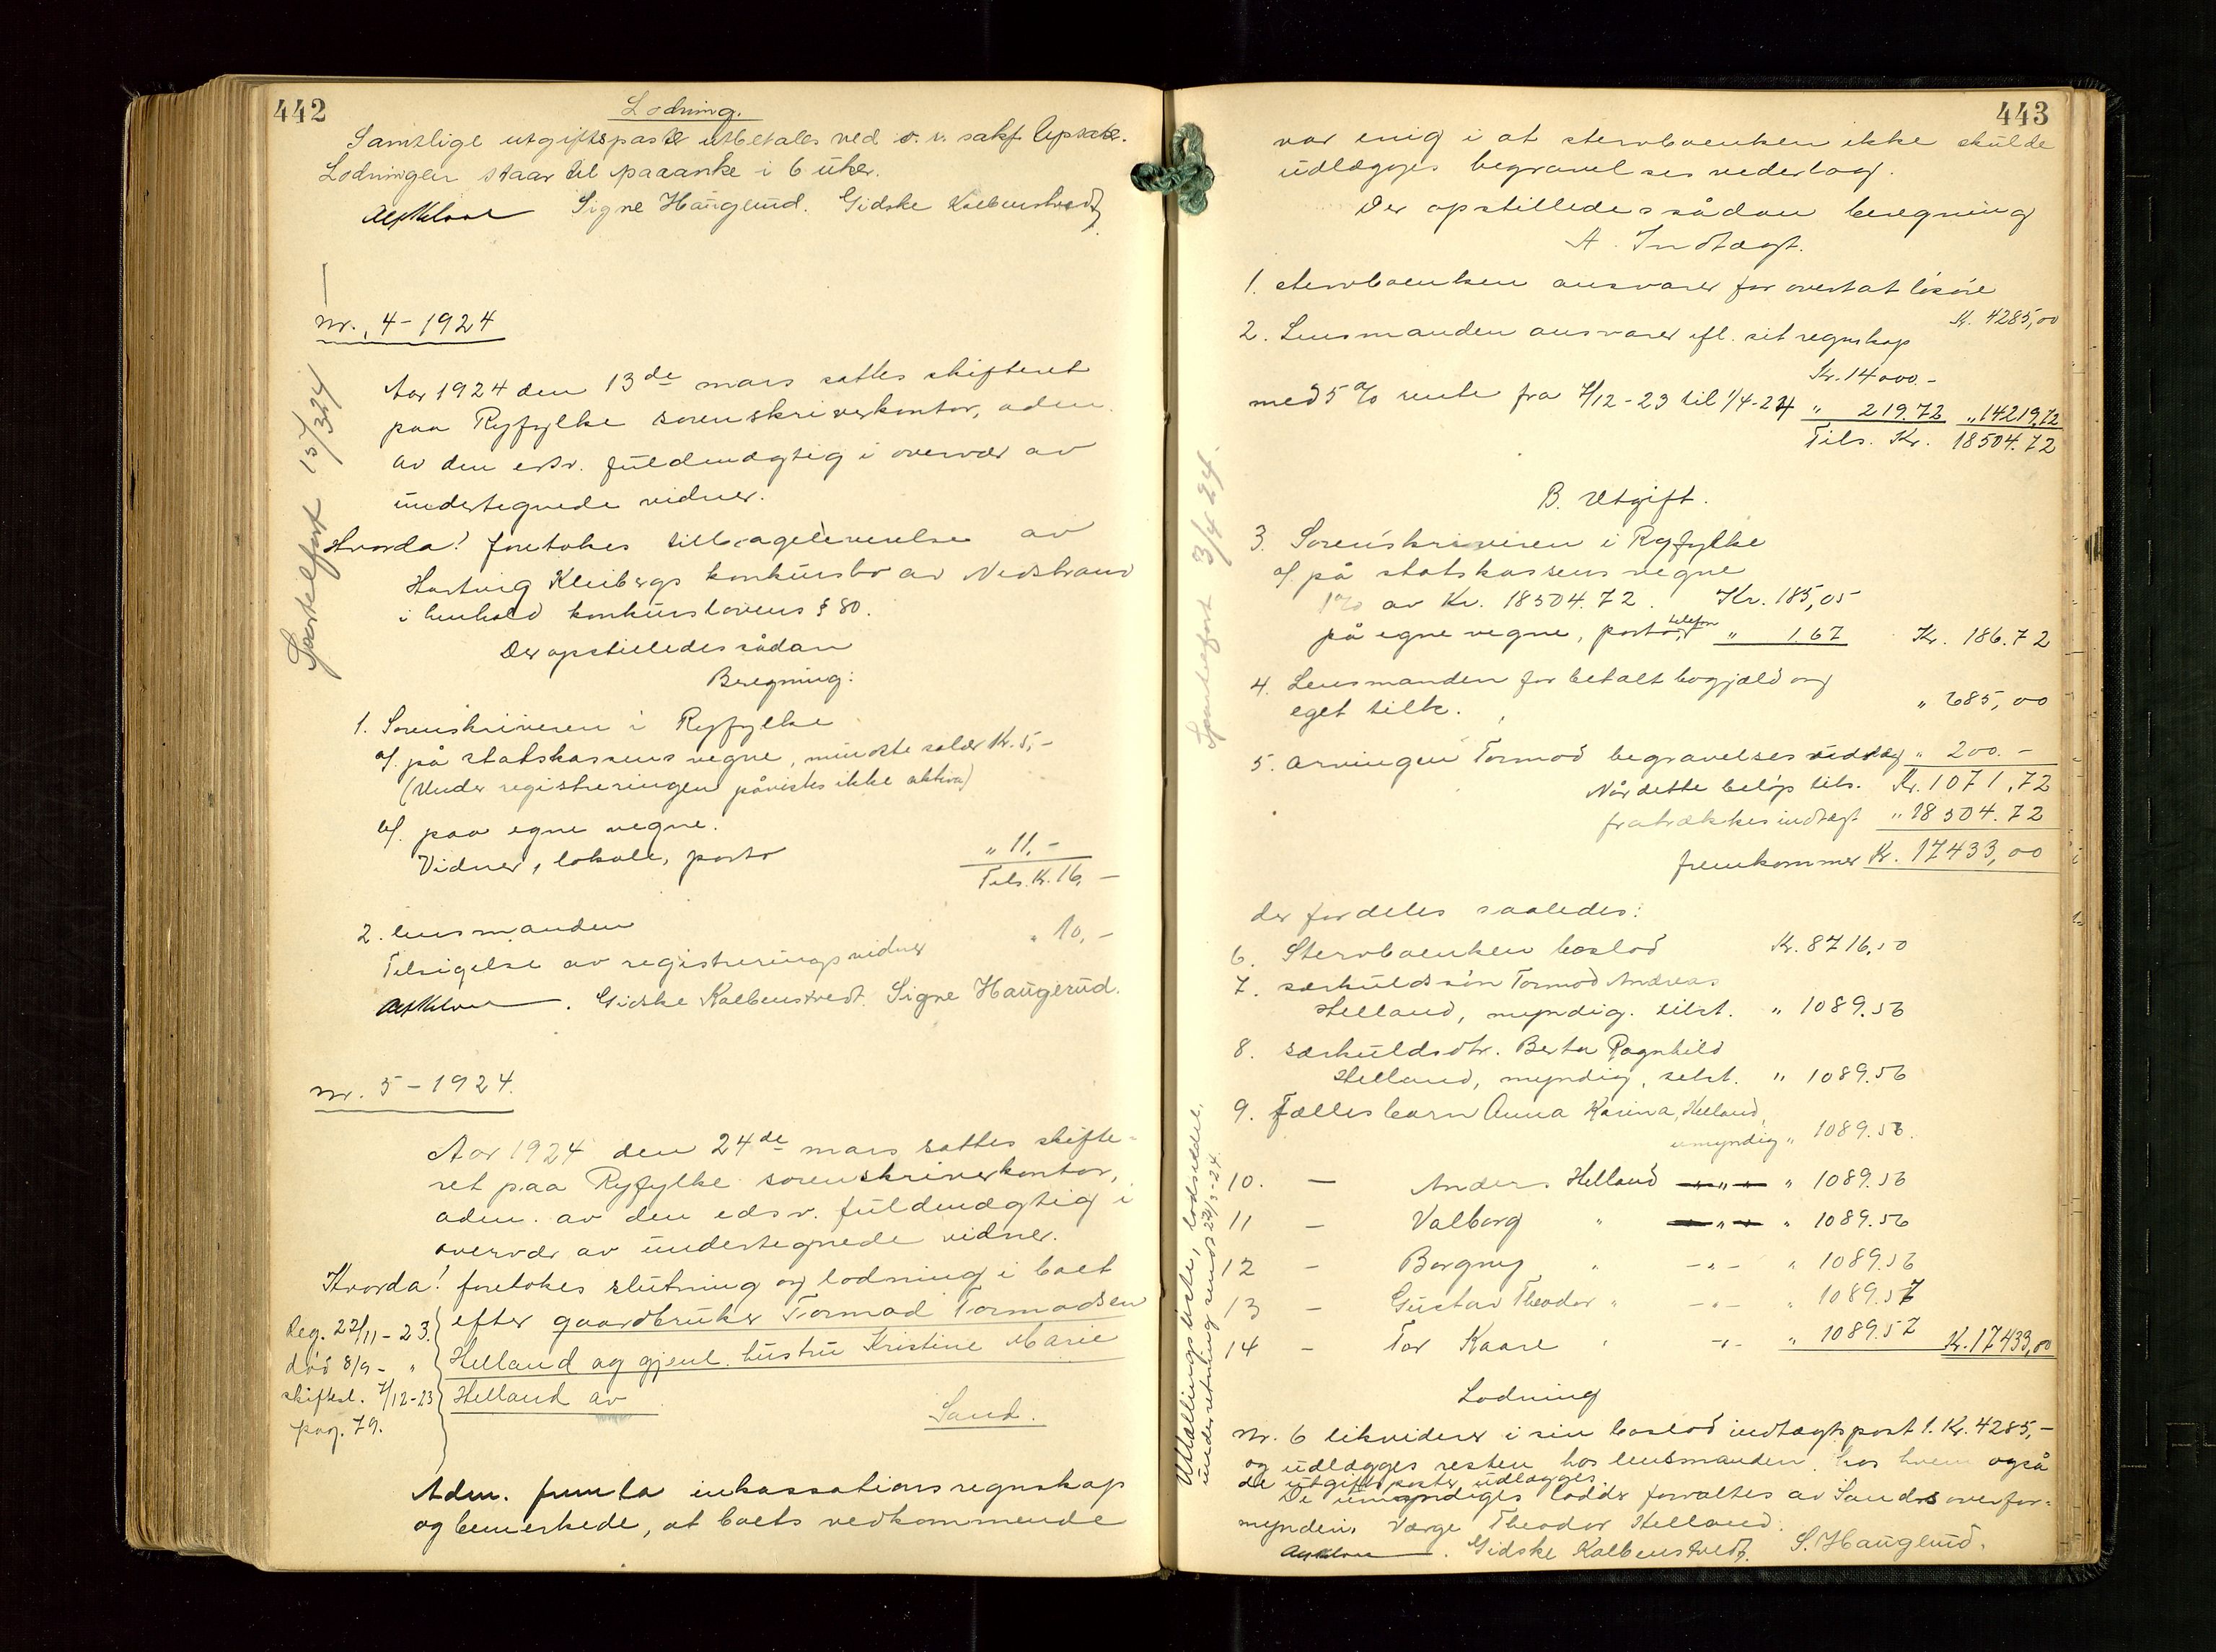 442
Lodning.
Samtlige utgiftsposter utbetales ved o. r. sakf.
Lodningen staar til paaanke i 6 uker.
Signe Haugerud. Gidske Kolbenstvedt
Nr. 4-1924
Sportelført 13/3 24
Aar 1924 den 13de mars sattes skifteret
paa Ryfylke sorenskriverkontor, adm.
av den edsv. fuldmægtig i overvær av
undertegnede vidner.
Hvorda! foretokes tilbageleverelse av
Hartvig Kleibergs konkursbo av Nedstrand
i henhold konkurslovens § 80.
Der opstilledes sådan
Beregning:
1. Sorenskriveren i Ryfylke
a/. på statskassens vegne, mindste salær Kr. 5,-
(Under registreringen påvistes ikke aktiva)
b/. paa egne vegne.
Vidner, lokale, porto " 11,-
Tils. Kr. 16,-
2. lensmanden
Tilsigelse av registreringsvidner " 10,-
Gidske Kolbenstvedt. Signe Haugerud.
Nr. 5-1924.
Aar 1924 den 24de mars sattes skifte-
ret paa Ryfylke sorenskriverkontor,
adm. av den edsv. fuldmægtig i
overvær av undertegnede vidner.
Hvorda! foretokes slutning og lodning i boet
efter gaardbruker Tormod Tormodsen
Helland og gjenl. hustru Kristine Marie
Helland av
Sand.
Reg. 22/11-23.
død 8/9- "
skiftesl. 7/12-23
pag. 79.
Adm. fremla inkassationsregnskap
og bemerkede, at boets vedkommende
443
var enig i at stervboenken ikke skulde
udlægges begravelsesvederlag.
Der opstilledes sådan beregning
A. Indtægt.
1. stervboenken ansvarer for overtat løsøre
Kr. 4285,00
2. Lensmanden ansvarer efl. sit regnskap
Kr. 14000.-
med 5 % rente fra 7/12-23 til 1/4-24 " 219.72 " 14219,72
Tils. Kr. 18504.72
B. Utgift.
3. Sorenskriveren i Ryfylke
a/. på statskassens vegne
1% av Kr. 18504.72. Kr. 185,05
på egne vegne, porto, telefon " 1.67 Kr. 186.72
4. Lensmanden for betalt bogjæld og
eget tilk. " 685,00
5. arvingen Tormod begravelsesvederlag " 200.-
Når dette beløp tils. Kr. 1071,72
fratrækkes indtægt " 18504.72
fremkommer Kr. 17433,00
Sportelført 3/4 24.
der fordeles saaledes:
6. Stervboenken boslod Kr. 8716,50
7. særkuldssøn Tormod Andreas
Helland, myndig. tilst. " 1089.56
8. særkuldsdtr. Berta Ragnhild
Helland, myndig, selst. " 1089.56
9. Fællesbarn Anna Karina Helland,
umyndig " 1089.56.
10. — Anders Helland — " — " 1089.56
11 — Valborg " — " — " 1089.56
12 — Borgny " — " — " 1089.56
13 — Gustav Theodor " — " — " 1089.57
14 — Tor Kaare " — " — " 1089.57 Kr. 17433,00
Lodning
Nr. 6 likviderer i sin boslod indtægtspost 1. Kr. 4285,-
og udlægges resten hos lensmanden hos hvem også
de utgiftsposter udlægges.
De umyndiges lodder forvaltes av Sands overfor-
mynderi. Værge Theodor Helland.
Gidske Kolbenstvedt. S. Haugerud.
Utlodningsliste, lodsedler,
underretning sendt 24/3-24.